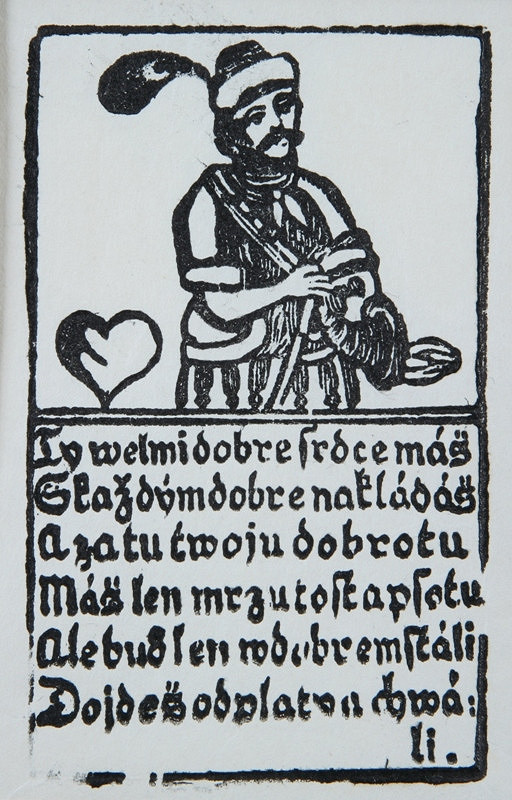 Ty welmi dobre srdce máš
S každým dobre nakládáš
A za tu twoju dobrotu
Máš len mrzutost a psotu
Ale buď len w dobrem stáli
Dojdeš odplatu a chwá:
li.